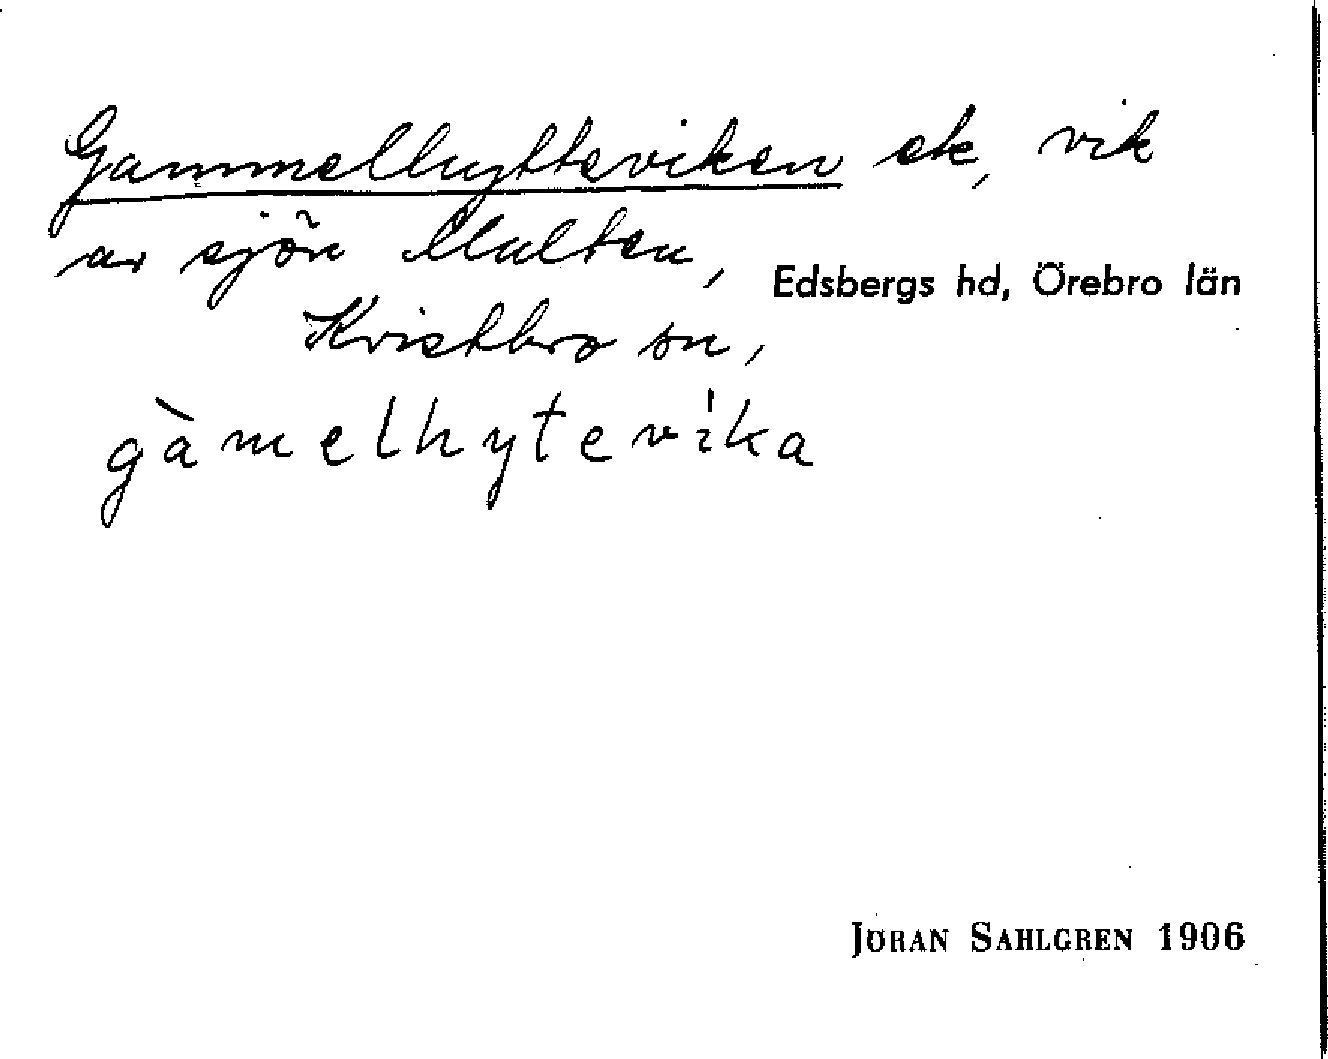 Gammelhytteviken ek, vik
av sjön Multen,
Edsbergs hd, Örebro län
Kvistbro sn,
gàmelhytevika
JÖRAN SAHLGREN 1906